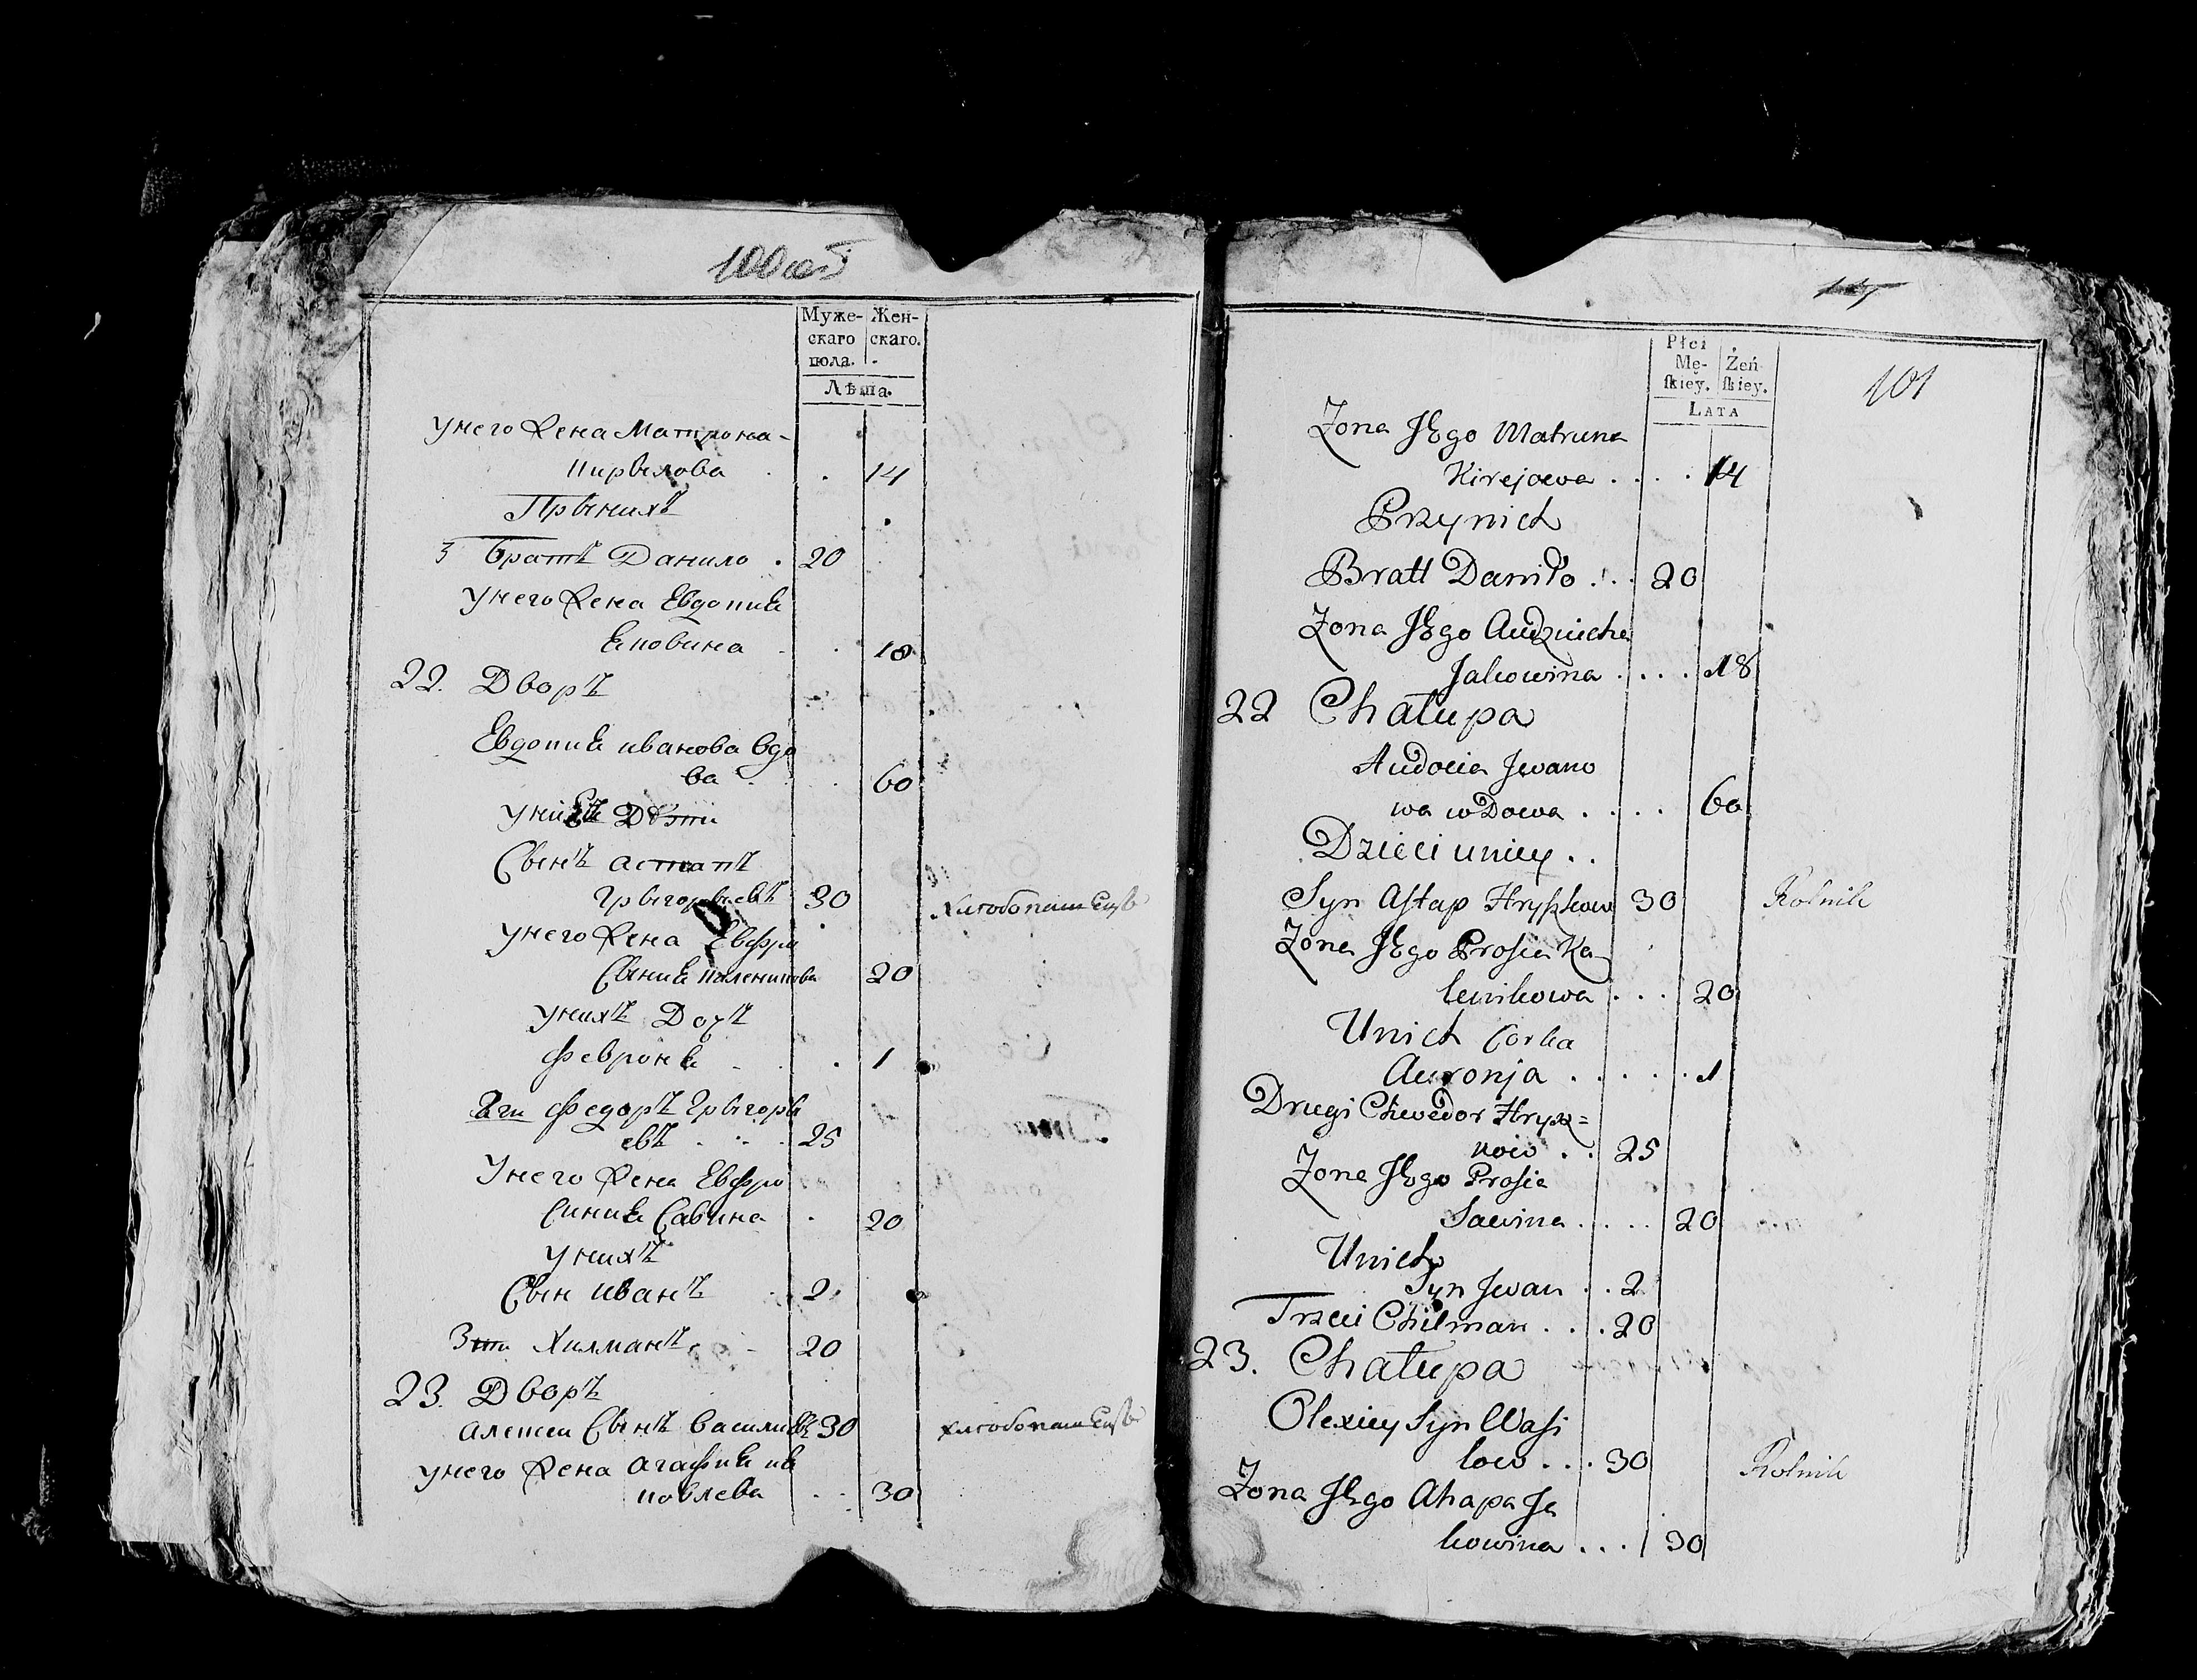 100
Муже-
скаго
пола.
Жен-
скаго.
Лѣта.
унего жена Матрона
кирѣлова . 14
Прыних
3 братъ Данило . 20
унего жена Евдокиѣ
ековина . . 18
22. Дворъ
Евдокиѣ иванова вдо
ва . . 60
уние Дѣти
Сынъ астапъ
Грыгорыевъ 30 хлѣбопашецъ
унего жена Евфро
сыниѣ каленикова 20
унихъ Дочъ
февронѣ . . 1
2ги федоръ Грыгорѣ
евъ . . . 25
унего жена Евфро
синиѣ Савина . 20
унихъ
Сын иванъ 2
3ти Хилманъ . 20
23. Дворъ
алексеи Сынъ василиевъ 30 хлѣбопашецъ
унего жена агафиѣ иѣ
ковлева . . 30
Płci
Mę-
ſkiey.
Żeń
ſkiey.
LATA
101
Zona JEgo Matruna
Kirejowa . . . . 14
Przynich
Bratt Daniło . . . 20
Zona JEgo Audziucha
Jakowina . . . . 18
22 Chałupa
Audocia Jwano
wa wDowa . . . . 60
Dzieci uniey . .
Syn Aſtap Hryſzkow 30 Rolnik
Zona JEgo Proſia Ka
lenikowa . . . 20
Unich Corka
Auronja . . . . . 1
Drugi Chwedor Hrysz=
kow . . 25
Zona JEgo Proſia
Sawina . . . . 20
Unich
Syn Jwan . . 2
Trzeci Chilman . . . 20
23. Chałupa
Olexiey Syn Waſi
low . . . 30 Rolnik
Zona JEgo Ahapa Ja
kowina . . . 30